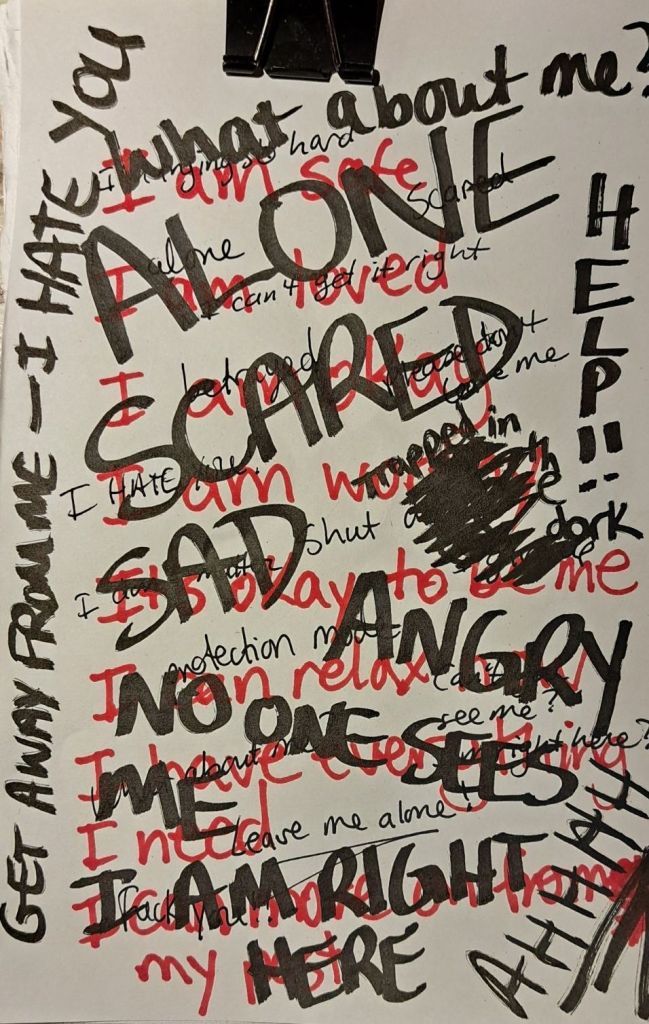 GET AWAY FROM ME - I HATE YOU
What about me?
I trying so hard
I am safe
Scared
ALONE
alone
I am loved
I can't get it right
HELP!!
SCARED
betrayed
Please don't
me
I am okay
Trapped in
I HATE
I am
the
dark
SAD
shut
I matter
It's okay to be me
ANGRY
protection mode
I can relax now
NO ONE SEES
Can't
see me?
I have everything
about me?
right here?
ME
I need
Leave me alone!
I AM RIGHT
I can move on from
Fuck you!!
my past
HERE
AHHHHH